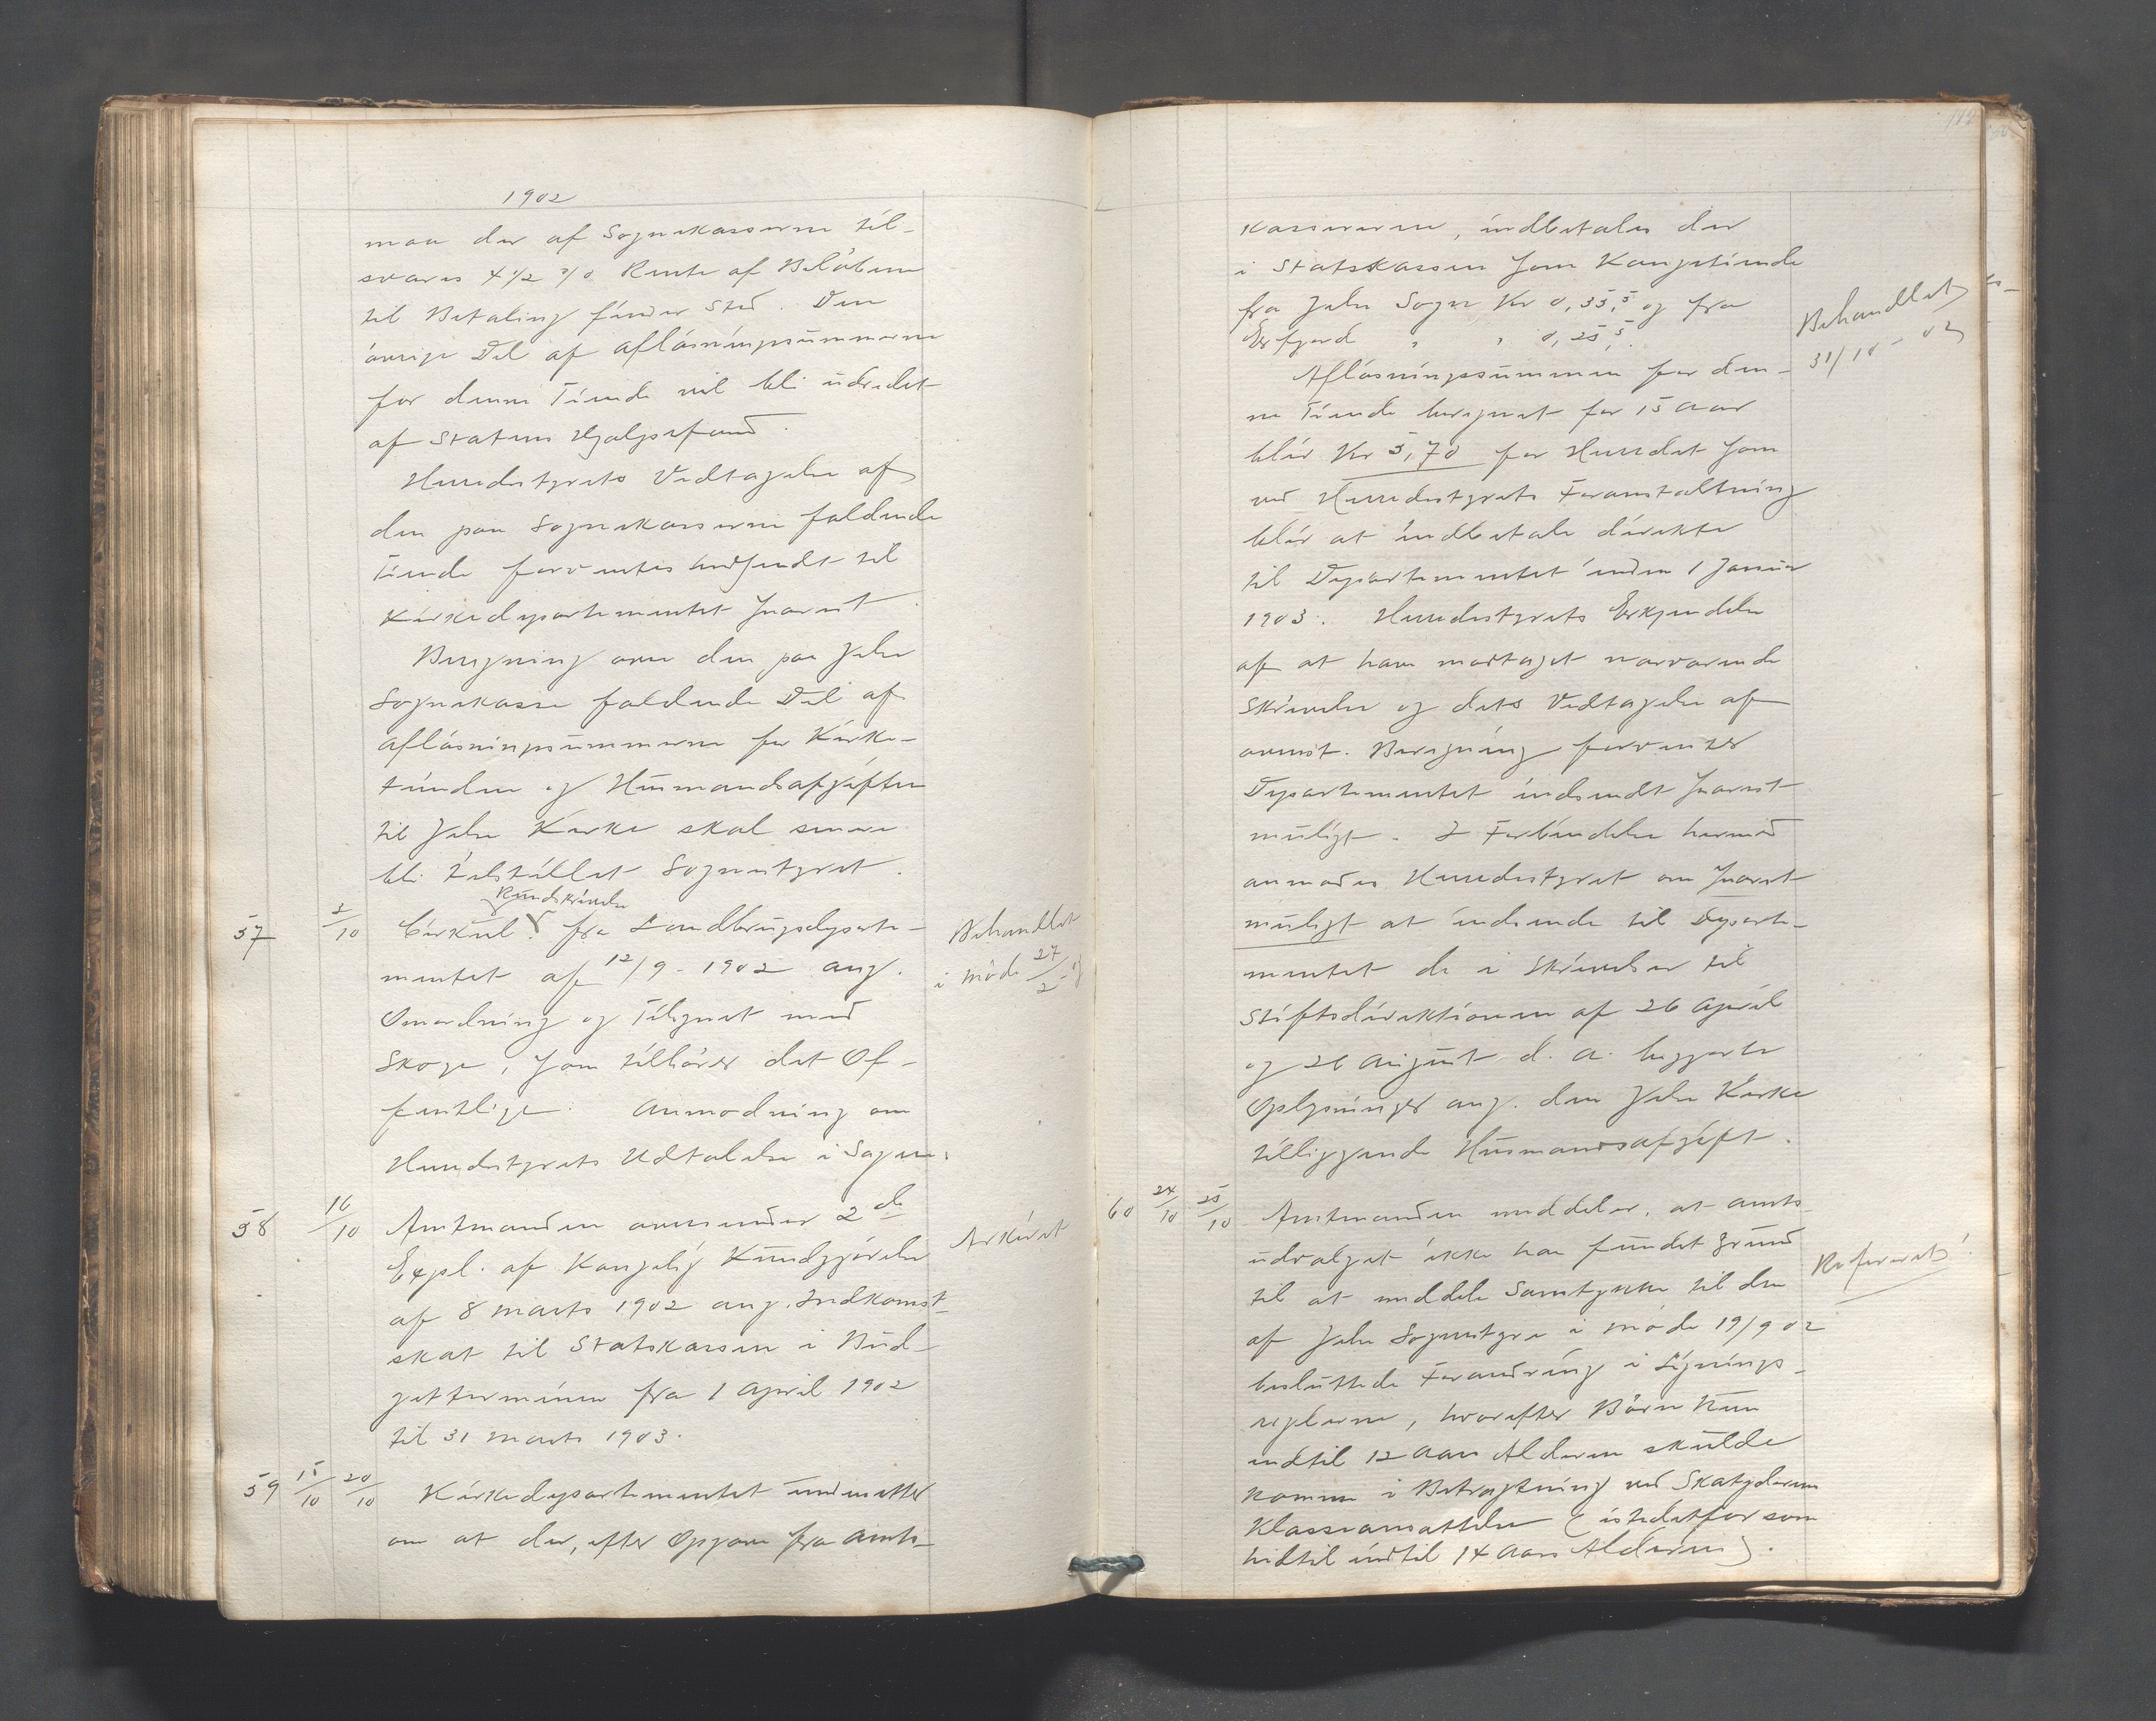 1902
maa der af Sognekasserne til-
svares 4 1/2 % Rente af Beløbene
til Betaling finder Sted. Den
øvrige Del af Afløsningssummerne
for denne Tiende vil bli udredet
af Statens Hjælpefond.
Herredstyrets Vedtagelse af
den paa Sognekasserne faldende
Tiende forventes indsendt til
Kirkedepartementet snarest.
Beregning over den paa Jelse
Sognekasse faldende Del af
Afløsningssummerne for Kirke-
tienden og Husmandsafgiften
til Jelse Kirke skal senere
bli tilstillet Sognestyret.
Rundskrivelse
57 3/10 Cirkul. fra Landbrugsdeparte-
mentet af 12/9-1902 ang.
Omordning og Tilsynet med
Skoge, som tilhører det Of-
fentlige. Anmodning om
Herredstyrets Udtalelse i Sagen.
Behandlet
i Møde 27/2-03
58 16/10 Amtmanden oversender 2de
Expl. af Kongelig Kundgjørelse
af 8 Marts 1902 ang. Indkomst-
skat til Statskassen i Bud-
getterminen fra 1 April 1902
til 31 Marts 1903.
Arkivet
59 15/10 20/10 Kirkedepartementet underretter
om at der, efter Opgave fra Amts-
kassereren, indbetales der
i Statskassen som Kongetiende
fra Jelse Sogn Kr 0,35,5 og fra
Erfjord " " 0,25,5.
Afløsningssummen for den-
ne Tiende beregnet for 15 Aar
blir Kr 5,70 for Herredet som
ved Herredstyrets Foranstaltning
blir at indbetale direkte
til Departementet inden 1 Januar
1903. Herredstyrets Erkjendelse
af at have modtaget nærværende
Skrivelse og dets Vedtagelse af
ovenst. Beregning forventer
Departementet indsendt snarest
muligt. I Forbindelse hermed
anmodes Herredstyret om snarest
muligt at indsende til Departe-
mentet de i Skrivelser til
Stiftsdirektionen af 26 April
og 21 August d. A. begjærte
Oplysninger ang. den Jelse Kirke
tilliggende Husmandsafgift.
Behandlet
31/10-02
60 24/10 25/10 Amtmanden meddeler, at Amts-
udvalget ikke har fundet Grund
til at meddele Samtykke til den
af Jelse Sognestyre i Møde 19/9 02
besluttede Forandring i Lignings-
reglerne, hvorefter Børn kun
indtil 12 Aars Alderen skulde
komme i Betragtning ved Skatyderens
Klasseansættelse (istedetfor som
hidtil indtil 14 Aars Alderen).
Refereret!